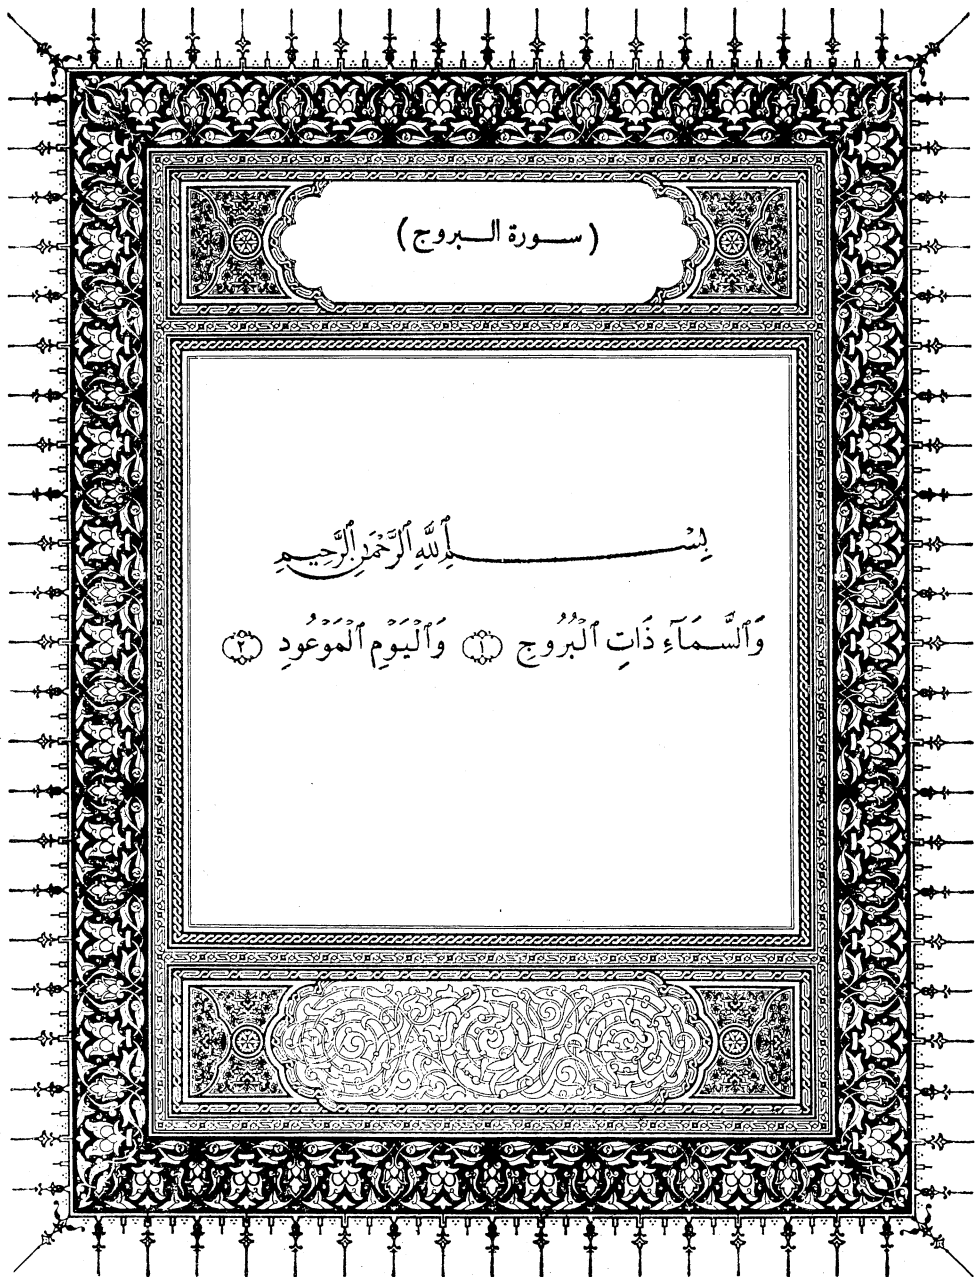 ( سورة البروج )
بِسْمِ ٱللَّهِ ٱلرَّحْمَٰنِ ٱلرَّحِيمِ
وَٱلسَّمَآءِ ذَاتِ ٱلْبُرُوجِ ١ وَٱلْيَوْمِ ٱلْمَوْعُودِ ٢